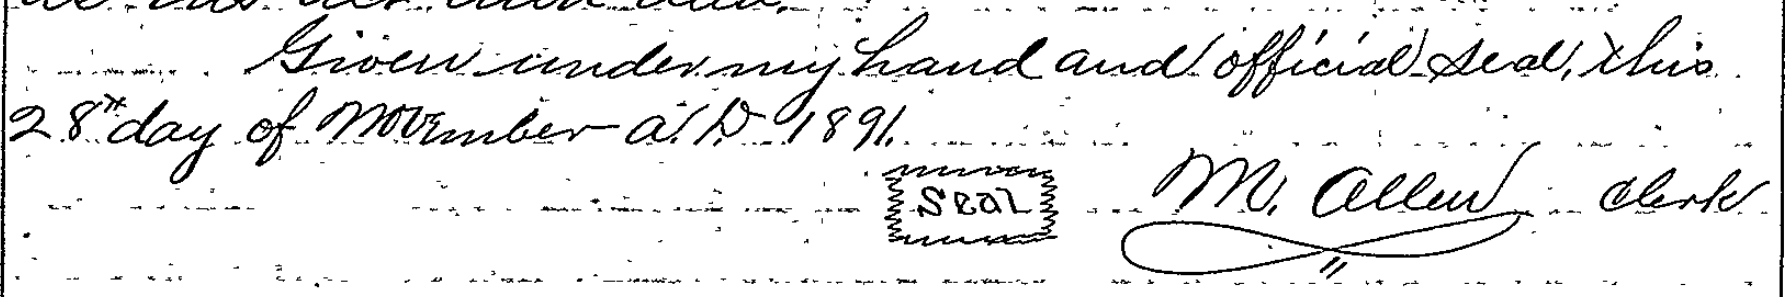 Given under my hand and official seal, this
28th day of November A.D. 1891.
Seal
M. Allen Clerk